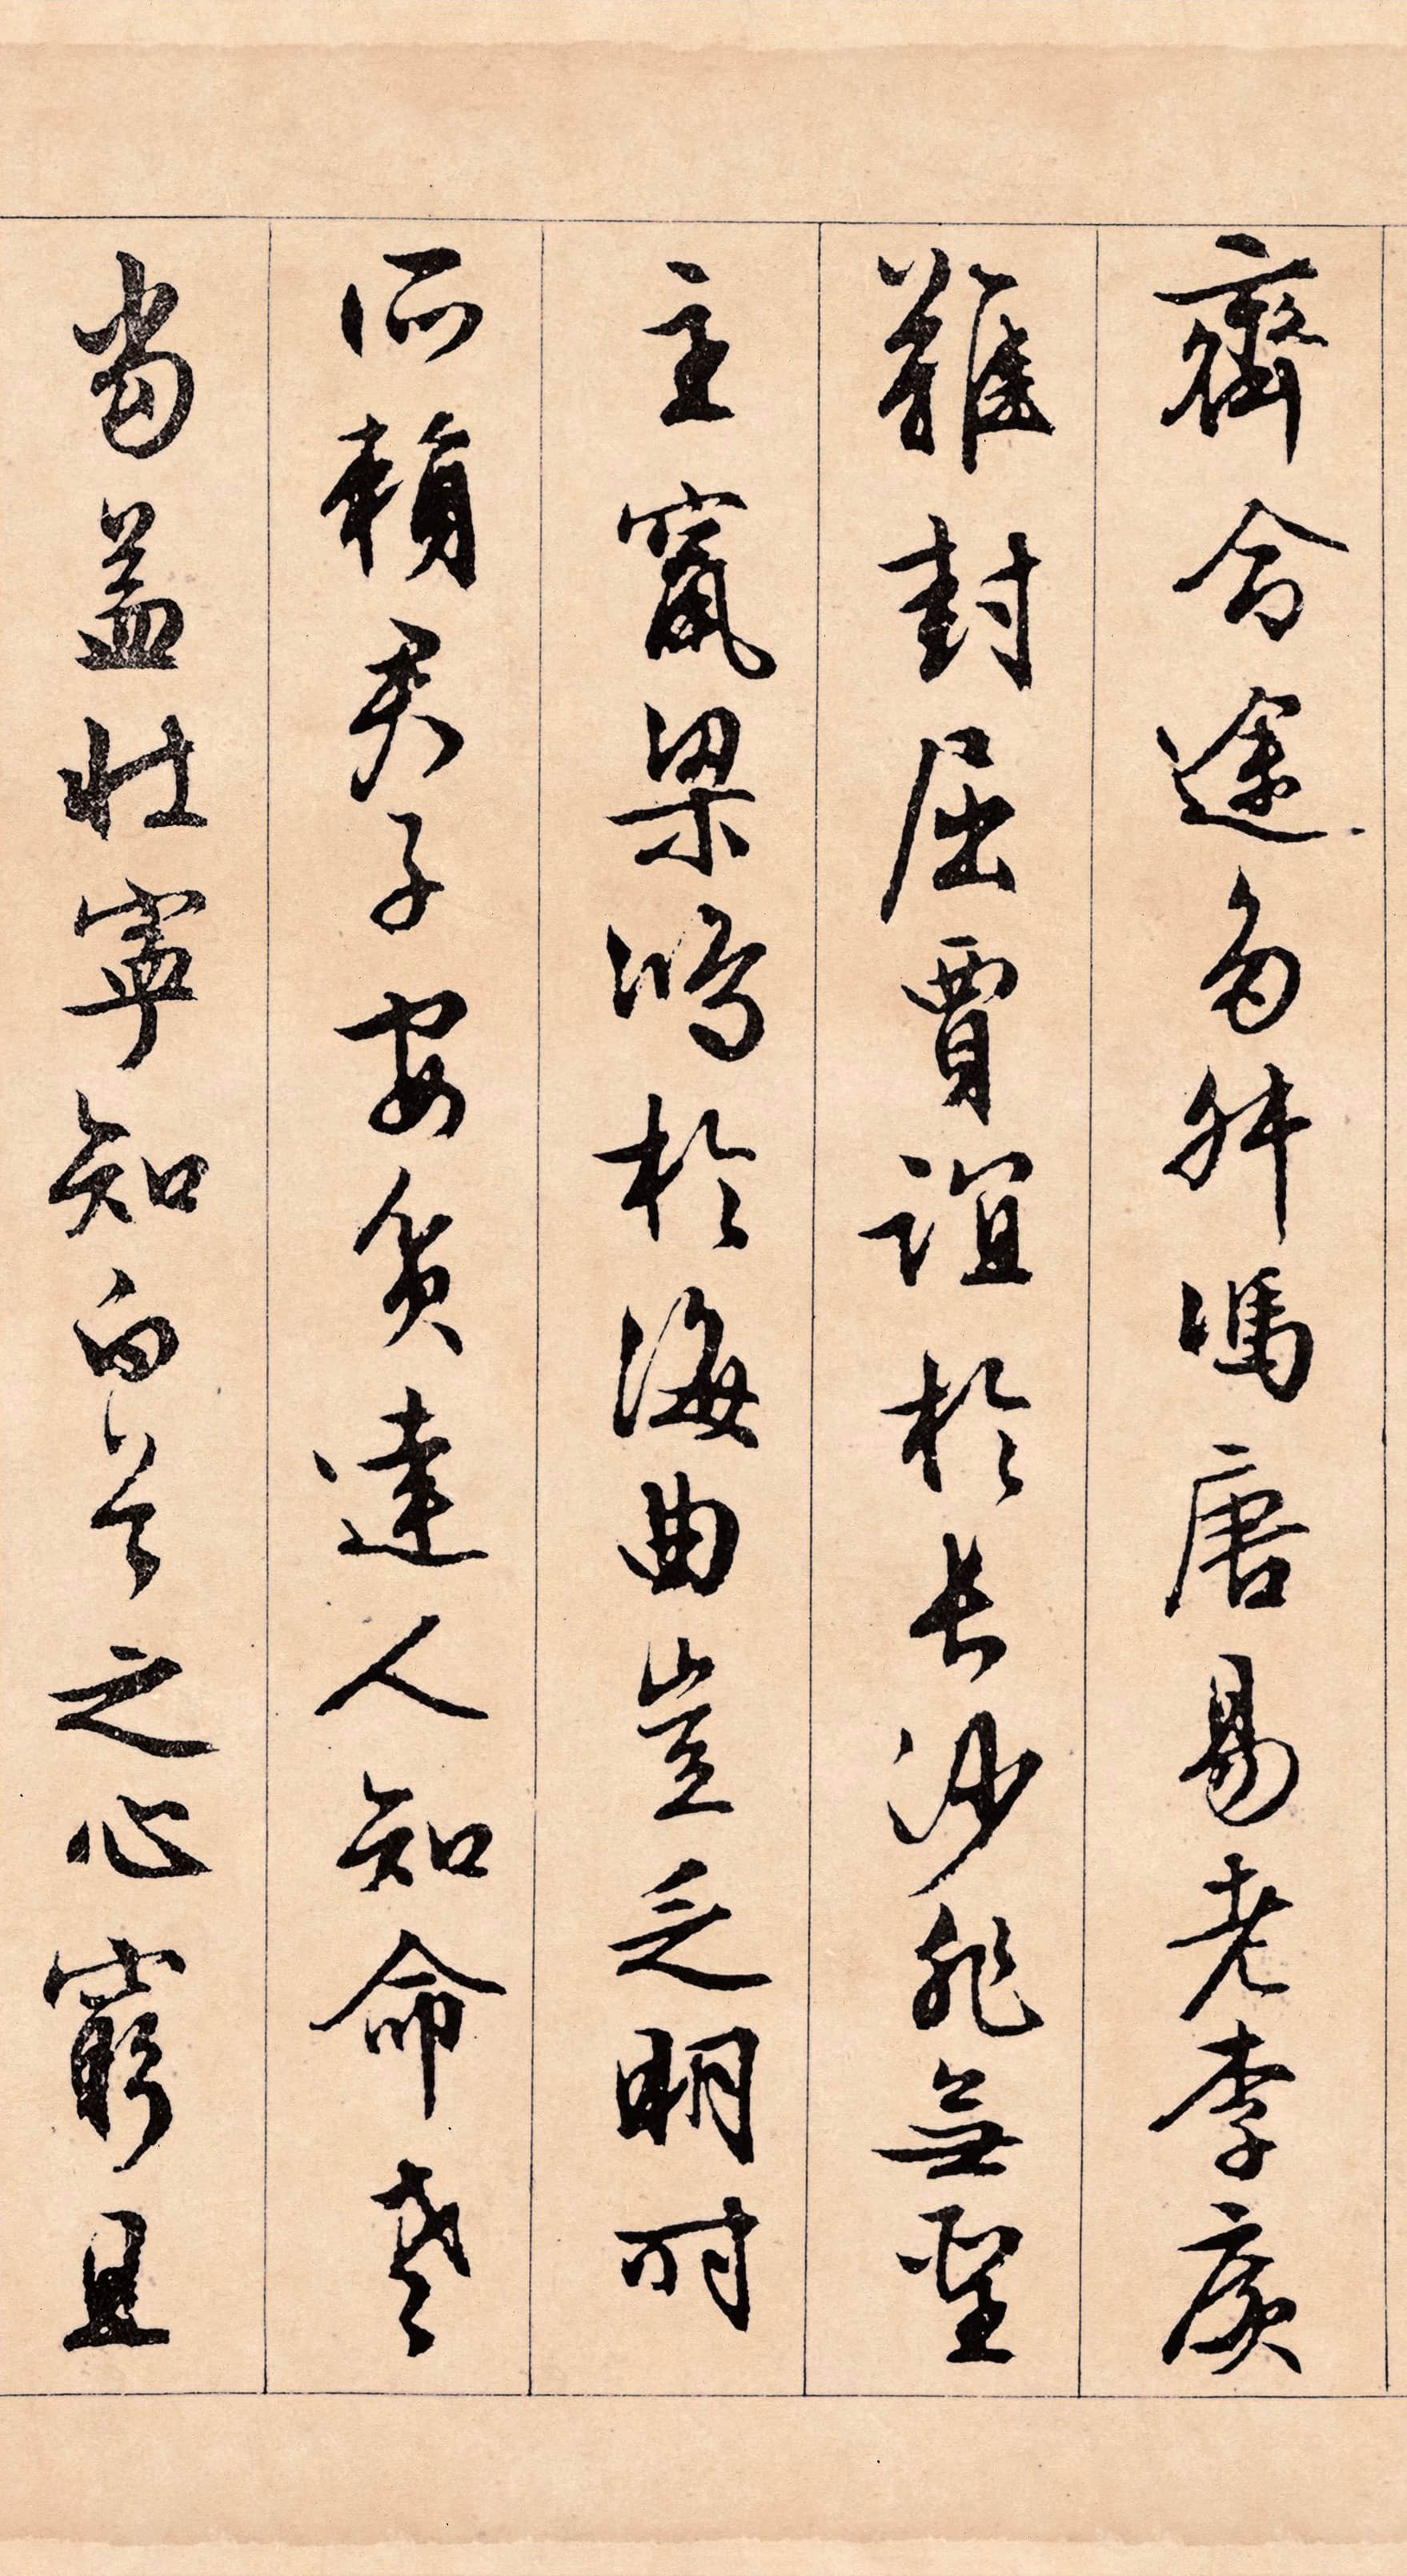 齊命途多舛馮唐易老李廣
難封屈賈誼於長沙非無聖
主竄梁鴻於海曲豈乏明時
所賴君子安貧達人知命老
當益壯寧知白首之心窮且